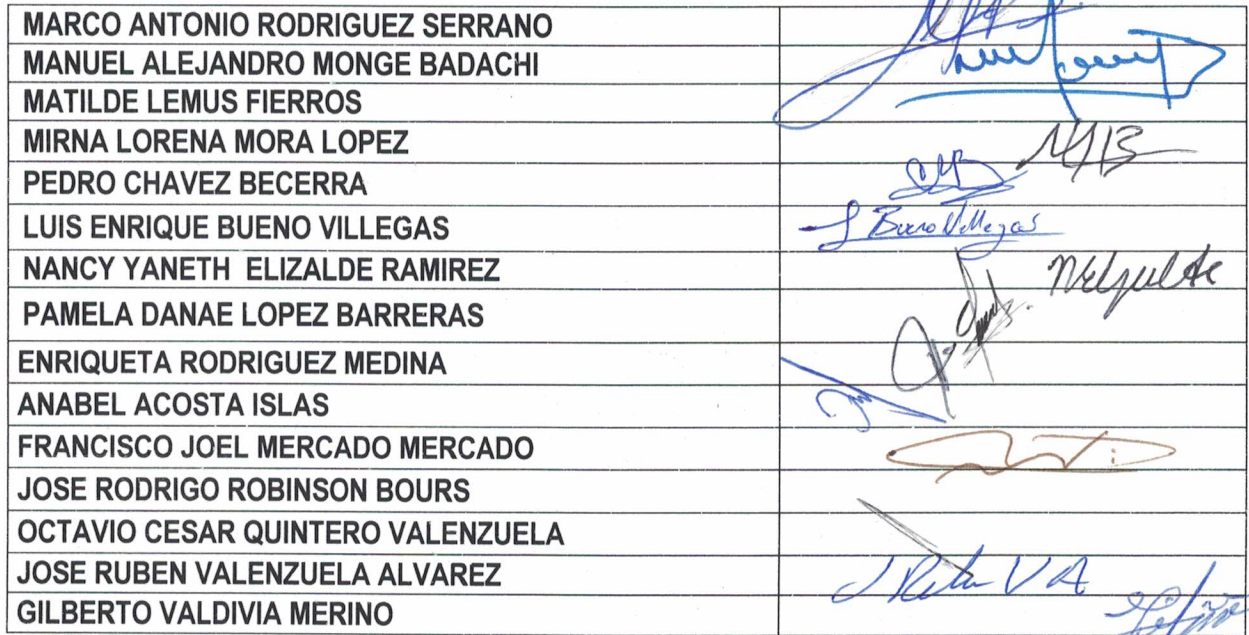 MARCO ANTONIO RODRIGUEZ SERRANO
MANUEL ALEJANDRO MONGE BADACHI
MATILDE LEMUS FIERROS
MIRNA LORENA MORA LOPEZ
PEDRO CHAVEZ BECERRA
LUIS ENRIQUE BUENO VILLEGAS
NANCY YANETH ELIZALDE RAMIREZ
PAMELA DANAE LOPEZ BARRERAS
ENRIQUETA RODRIGUEZ MEDINA
ANABEL ACOSTA ISLAS
FRANCISCO JOEL MERCADO MERCADO
JOSE RODRIGO ROBINSON BOURS
OCTAVIO CESAR QUINTERO VALENZUELA
JOSE RUBEN VALENZUELA ALVAREZ
GILBERTO VALDIVIA MERINO